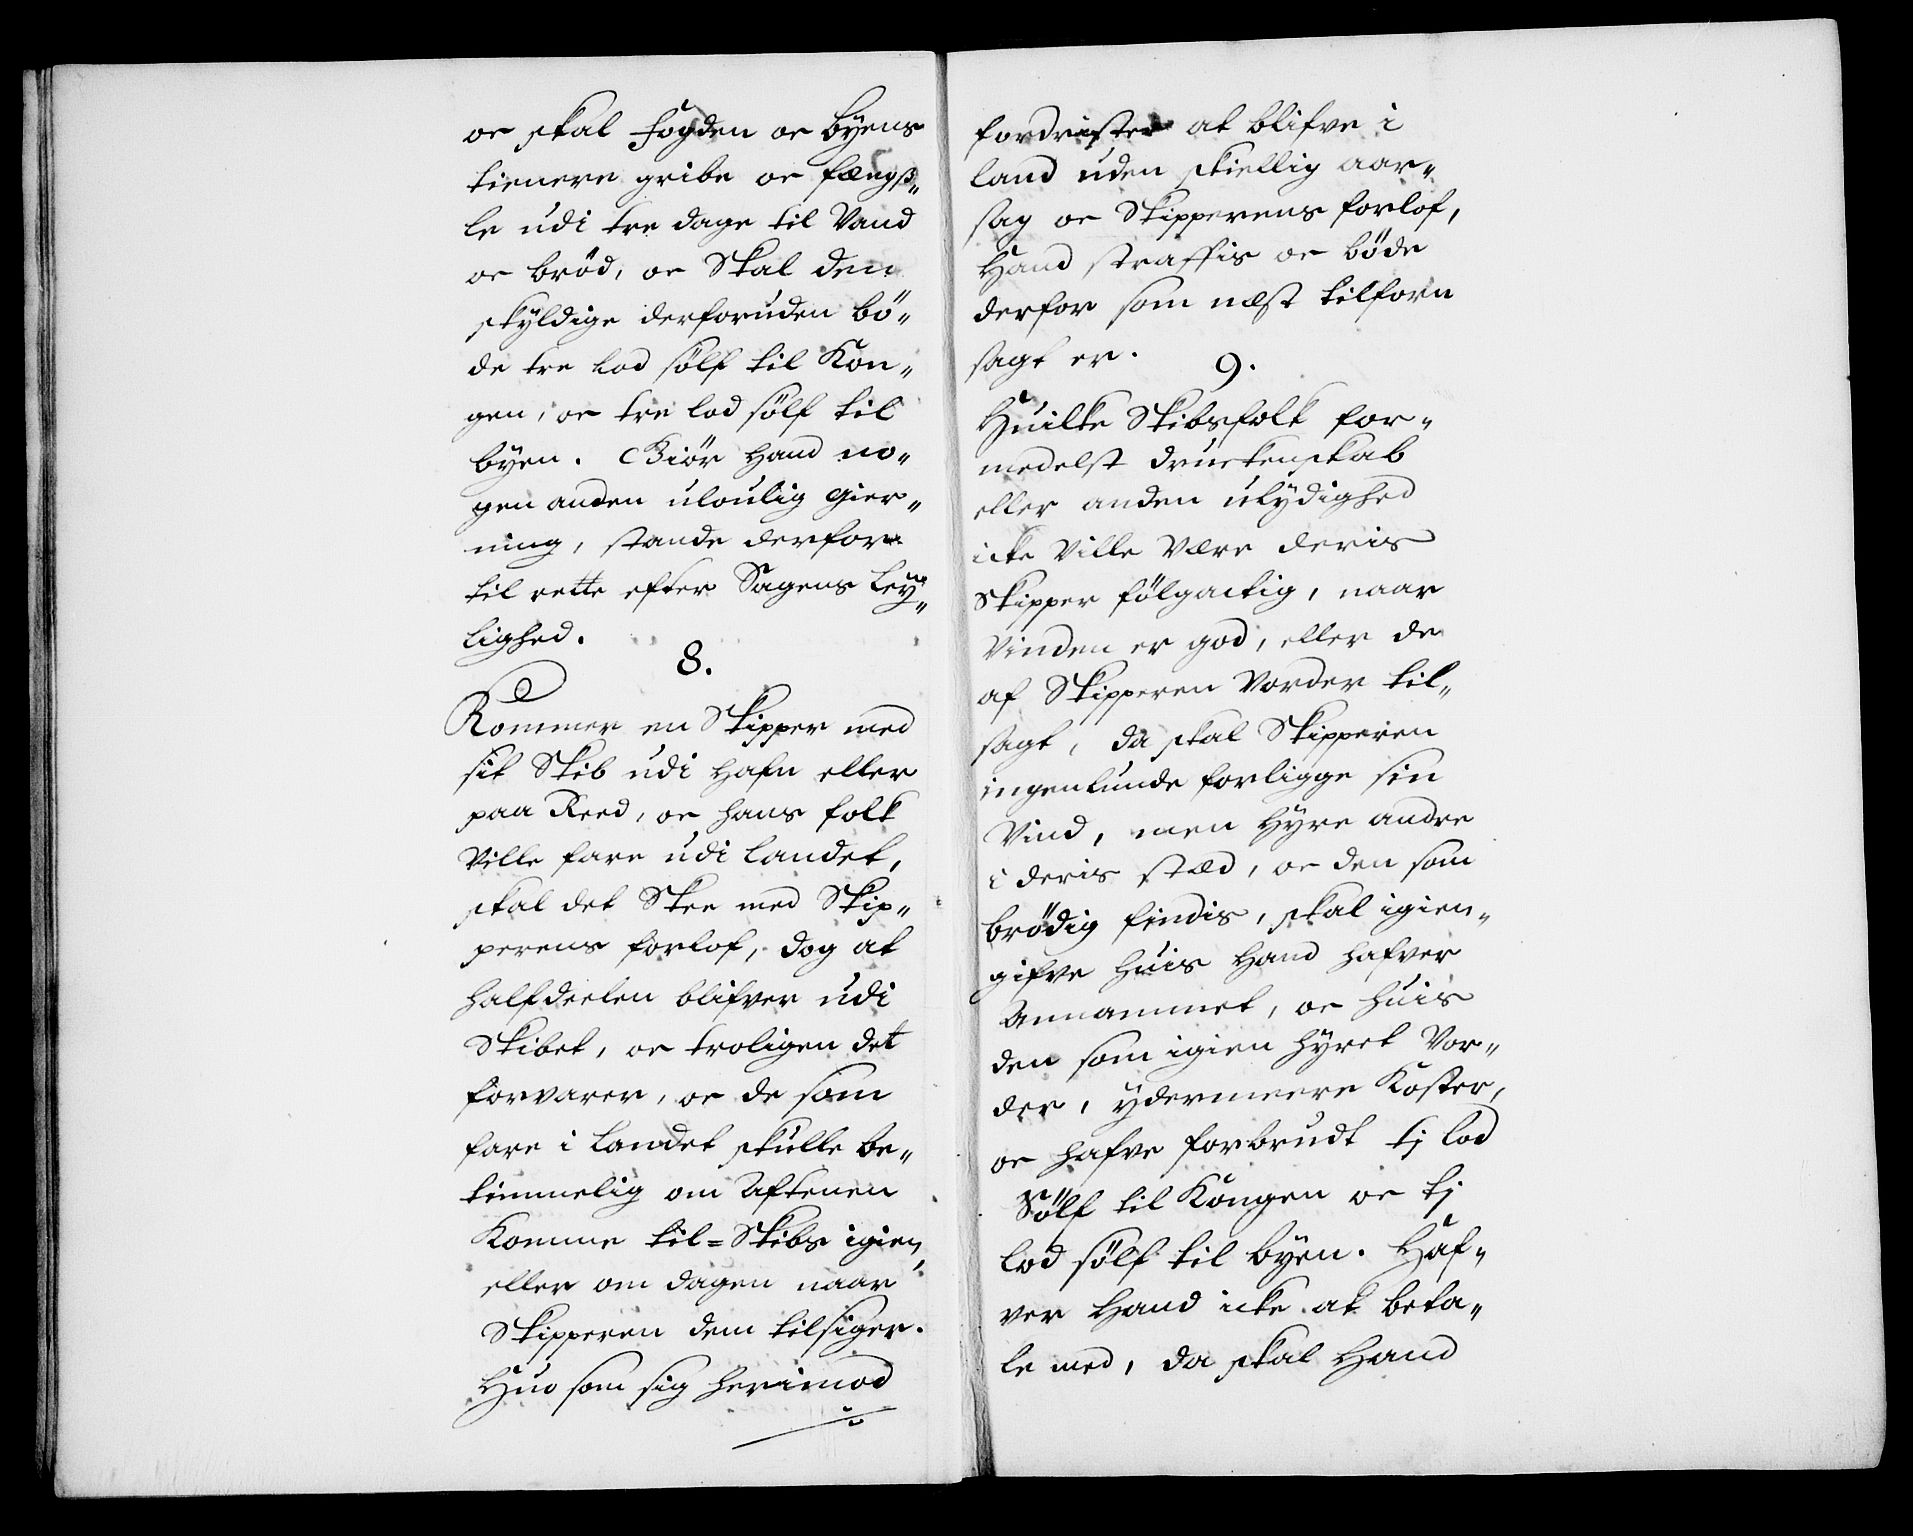 oc skal Fogden oc byens
tienere gribe oc fængs„
le udi tre dage til Vand
oc brød, oc Skal den
skyldige derforuden bö„
de tre Lod sölf til Kon„
gen, oc tre lod sölf til
byen. Giör Hand no„
gen anden uloulig gier„
ning, stande derfore
til rette efter Sagens Ley„
lighed.
8.
Kommer en Skipper med
sit Skib udi Hafn eller
paa Reed, oc hans folk
Ville fare udi landet,
skal det Skee med Skip„
perens forlof, dog at
halfdeelen blifver udi
Skibet, oc troligen det
forvarer, oc de som
fare i Landet skulle be„
timmelig om Aftenen
Komme til=Skibs igien,
eller om dagen naar
Skipperen dem tilsiger.
Huo som sig herimod
fordrister at blifve i
land uden skiellig aar„
sag oc Skipperens forlof,
Hand straffis oc böde
derfor som næst tilforn
sagt er.
9.
Huilke Skibsfolk for„
medelst druckenskab
eller anden ulydighed
icke Ville Være deris
Skipper fölgactig, naar
Vinden er god, eller de
af Skipperen Vorder til„
sagt, da skal Skipperen
ingenlunde forligge sin
Vind, men Hyre andre
i deris stæd, oc den som
brödig findis, skal igien„
gifve huis Hand hafver
Annammet, oc huis
den som igien hyret Vor„
der, ydermeere Koster,
oc hafve forbrudt tj lod
Sölf til Kongen oc tj
lod sölf til byen. Haf„
ver Hand icke at beta„
le med, da skal Hand